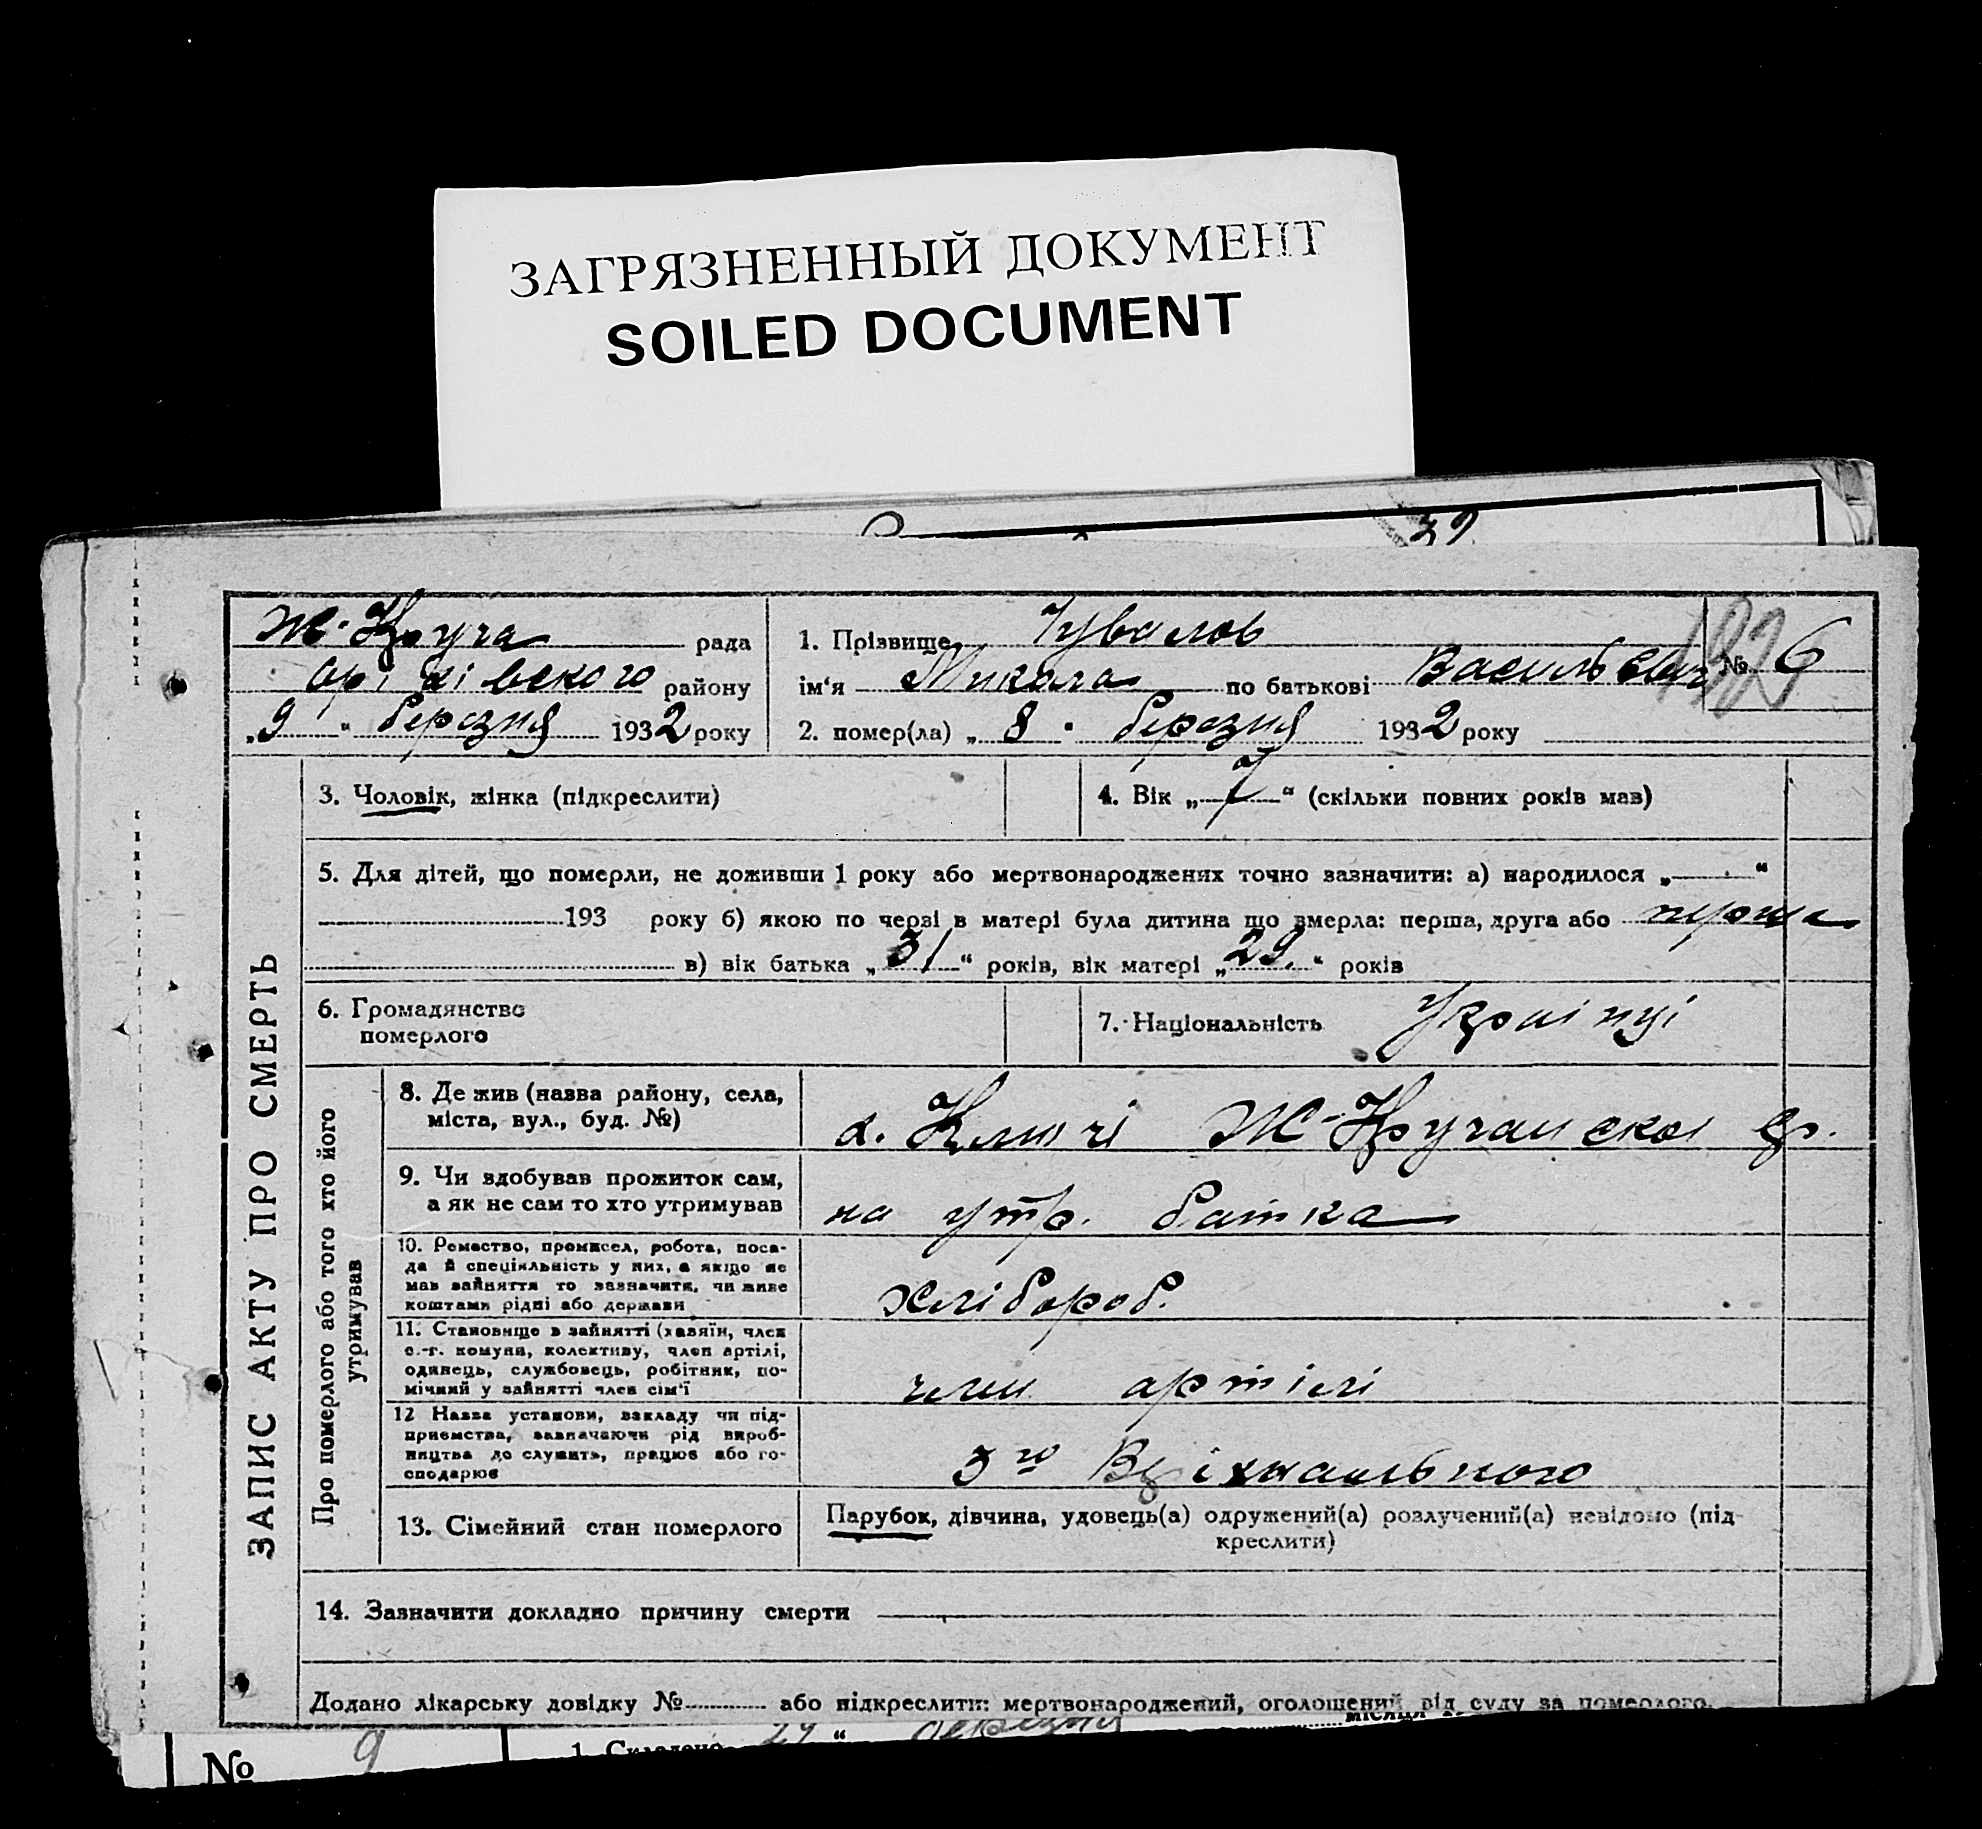 ЗАГРЯЗНЕННЫЙ ДОКУМЕНТ
SOILED DOCUMENT
39
Ж-Круча рада
Оріківского району
„9“ березня 1932 року
1. Прізвище Чувалов
ім‘я Микола по батькові Васильевич
№ 6
2. помер(ла) „8“ березня 1932 року
ЗАПИС АКТУ ПРО СМЕРТЬ
3. Чоловік, жінка (підкреслити)
4. Вік „7“ (скільки повних років мав)
5. Для дітей, що померли, не доживши 1 року або мертвонароджених точно зазначити: а) народилося „ “
193 року б) якою по черзі в матері була дитина що вмерла: перша, друга або перша
в) вік батька „31“ років, вік матері „29“ років
6. Громадянство
померлого
7. Національність Україпці
Про померлого або того хто його
утримував
8. Де жив (назва району, села,
міста, вул., буд. №)
х. Ключі Ж-Кручанскоі ср.
9. Чи вдобував прожиток сам,
а як не сам то хто утримував
на утр. батка
10. Ремество, промисел, робота, поса-
да й спеціяльність у них, а якщо не
мав зайняття то зазначити, чи живе
коштами рідні або держави
хлібороб.
11. Становище в зайнятті (хазяїн, член
с.-г. комуни, колективу, член артілі,
одинець, службовець, робітник, по-
мічний у зайнятті член сім‘ї
член артілі
12 Назва установи, закладу чи під-
приємства, зазначаючи рід вироб-
ництва де служить, працює або го-
сподарює
3го
13. Сімейний стан померлого
Парубок, дівчина, удовець(а) одружений(а) розлучений(а) невідомо (під-
креслити)
14. Зазначити докладно причину смерти
Додано лікарську довідку № або підкреслити: мертвонароджений, оголошений від суду за померлого.
№ 9
1. Складено 29 “ березня місяця